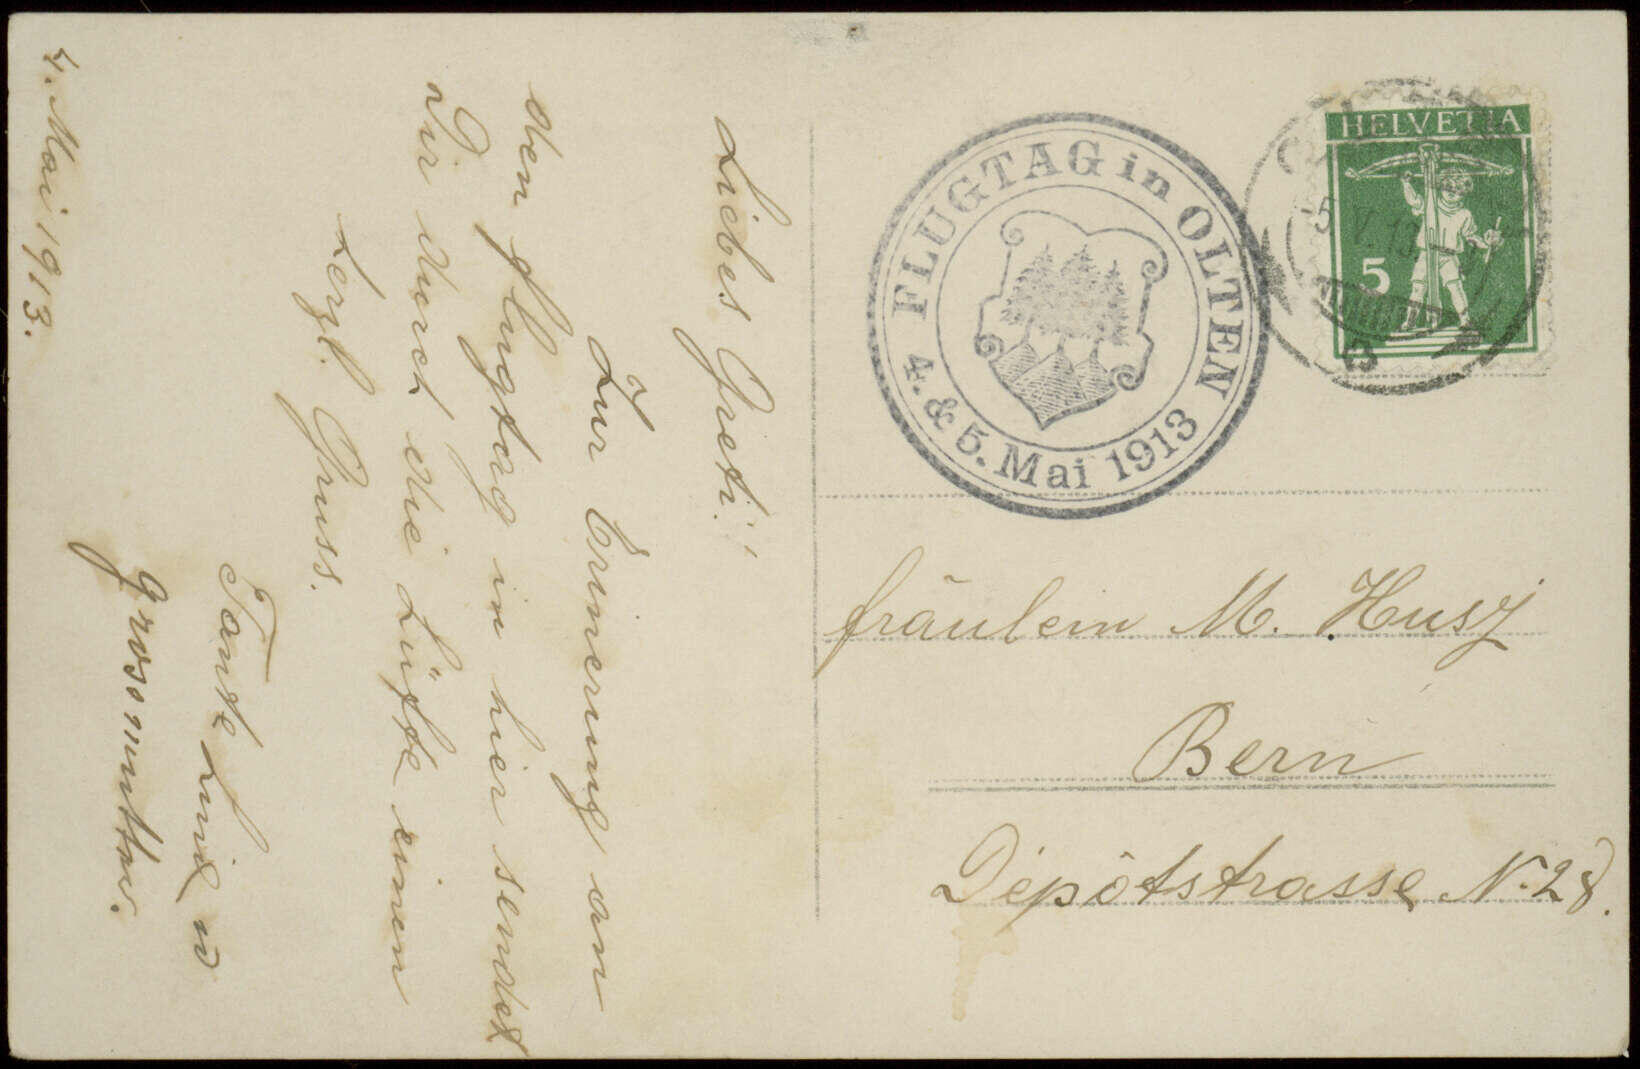 4. Mai 1913.
Liebes Greti!
Zur Erinnerung an
den Flugtag in hier sendet
Dir durch die Lüfte einen
herzl. Gruss.
Tante Lina u
Grossmutter.
FLUGTAG in OLTEN
4. & 5. Mai 1913
HELVETIA
5
5. V. 13
Fräulein M. Husy
Bern
Depôtstrasse N. 28.